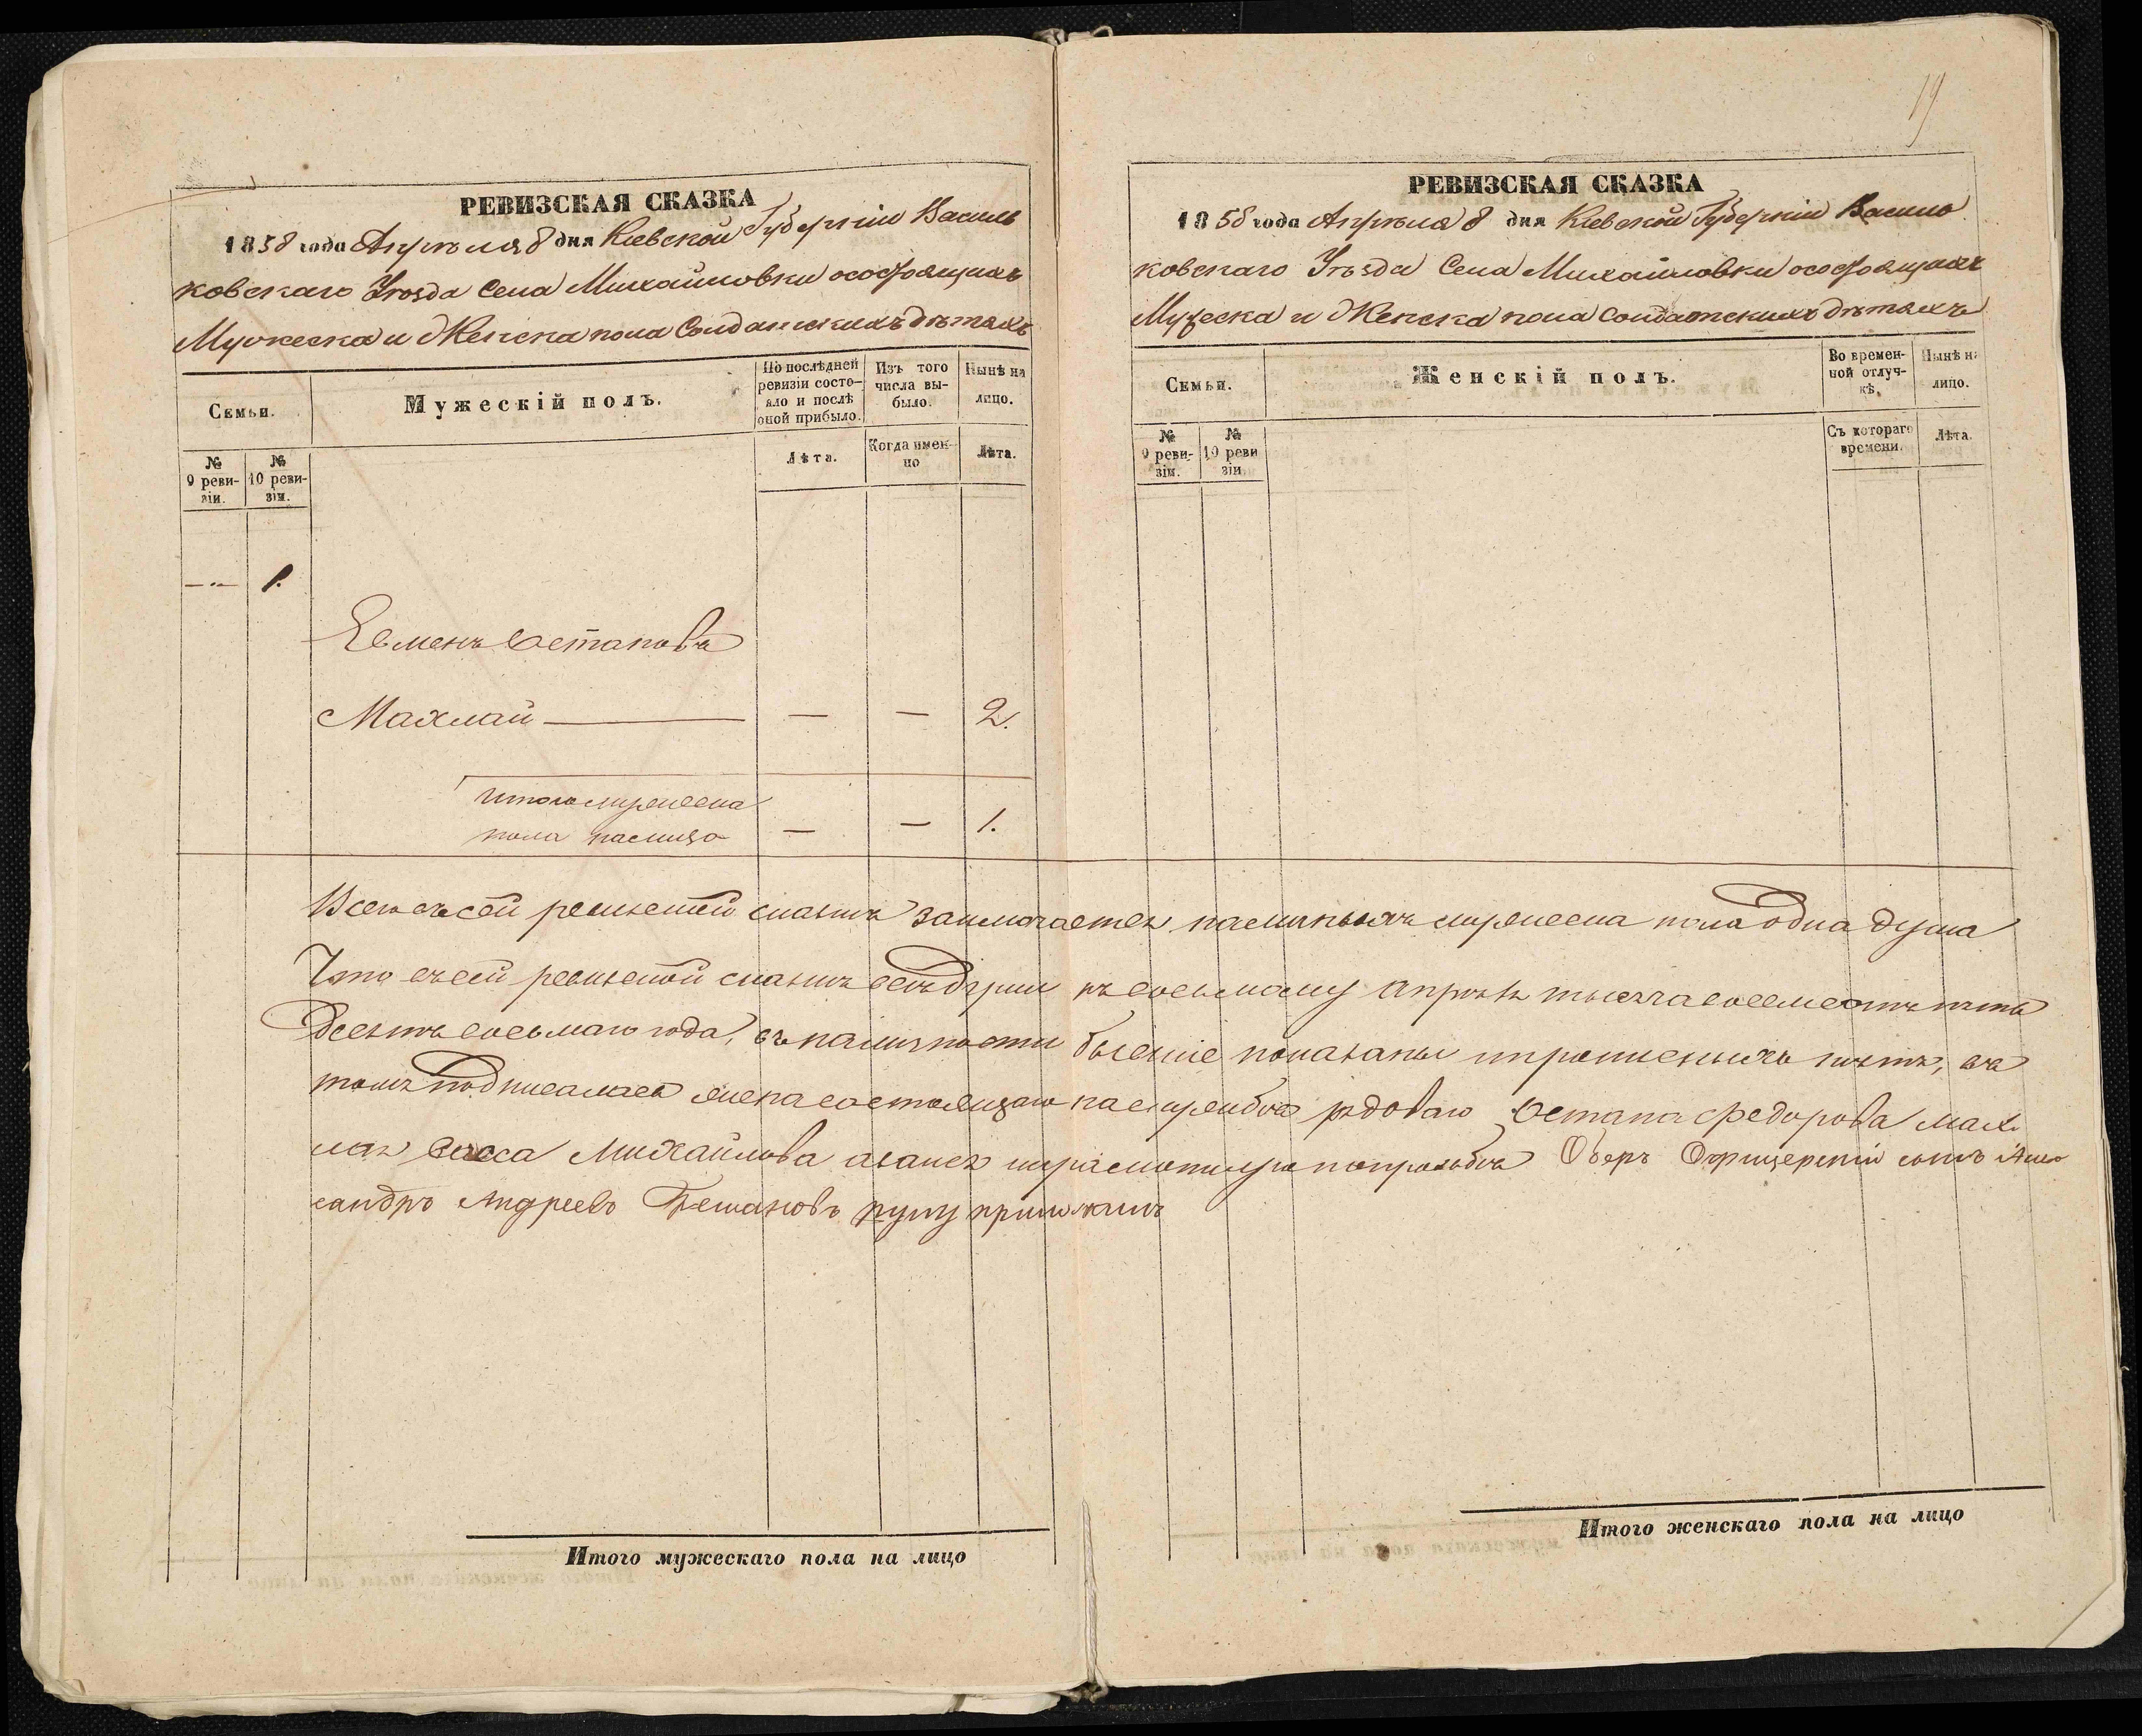 РЕВИЗСКАЯ СКАЗКА
1858 года Апрѣля 8 дня Кіевской Губерніи Василь
ковскаго Уѣзда Села Михайловки о состоящихъ
Мужеска и Женска пола Солдатскихъ дѣтяхъ
Семьи.
Мужескій полъ.
По послѣдней ревизіи состо-
яло и послѣ оной прибыло.
Изъ того числа вы-
было.
Нынѣ на лицо.
№ 9 реви-
зіи.
№ 10 реви-
зіи.
Лѣта.
Когда имен-
но
Лѣта.
—"— 1.
Евменъ Остаповъ
Махлай — — — 2.
Итого мужеска
пола налицо — — 1.
Итого мужескаго пола на лицо
19
РЕВИЗСКАЯ СКАЗКА
1858 года Апрѣля 8 дня Кіевской Губерніи Василь
ковскаго Уѣзда Села Михайловки о состоящихъ
Мужеска и Женска пола Солдатскихъ дѣтяхъ
Семьи.
Женскій полъ.
Во времен-
ной отлуч-
кѣ.
Нынѣ на лицо.
№ 9 реви-
зіи.
№ 10 реви
зіи.
Съ котораго времени.
Лѣта.
Всего въ сей ревизской сказкѣ заключается наличныхъ мужеска пола одна душа
Что въ сей ревизской сказкѣ всѣ души къ восьмому апрѣля тысяча восемсотъ пять
десятъ восьмаго года, въ наличности бывшіе показаны и пропискныхъ нѣтъ, въ
томъ подписалась жена состоящаго на службѣ рядоваго Остапа Федорова Мах
лая Михайлова а за нея неграмотную по прозьбѣ Оберъ Офицерскій сынъ Алек
сандръ Андреевъ руку приложилъ
Итого женскаго пола на лицо